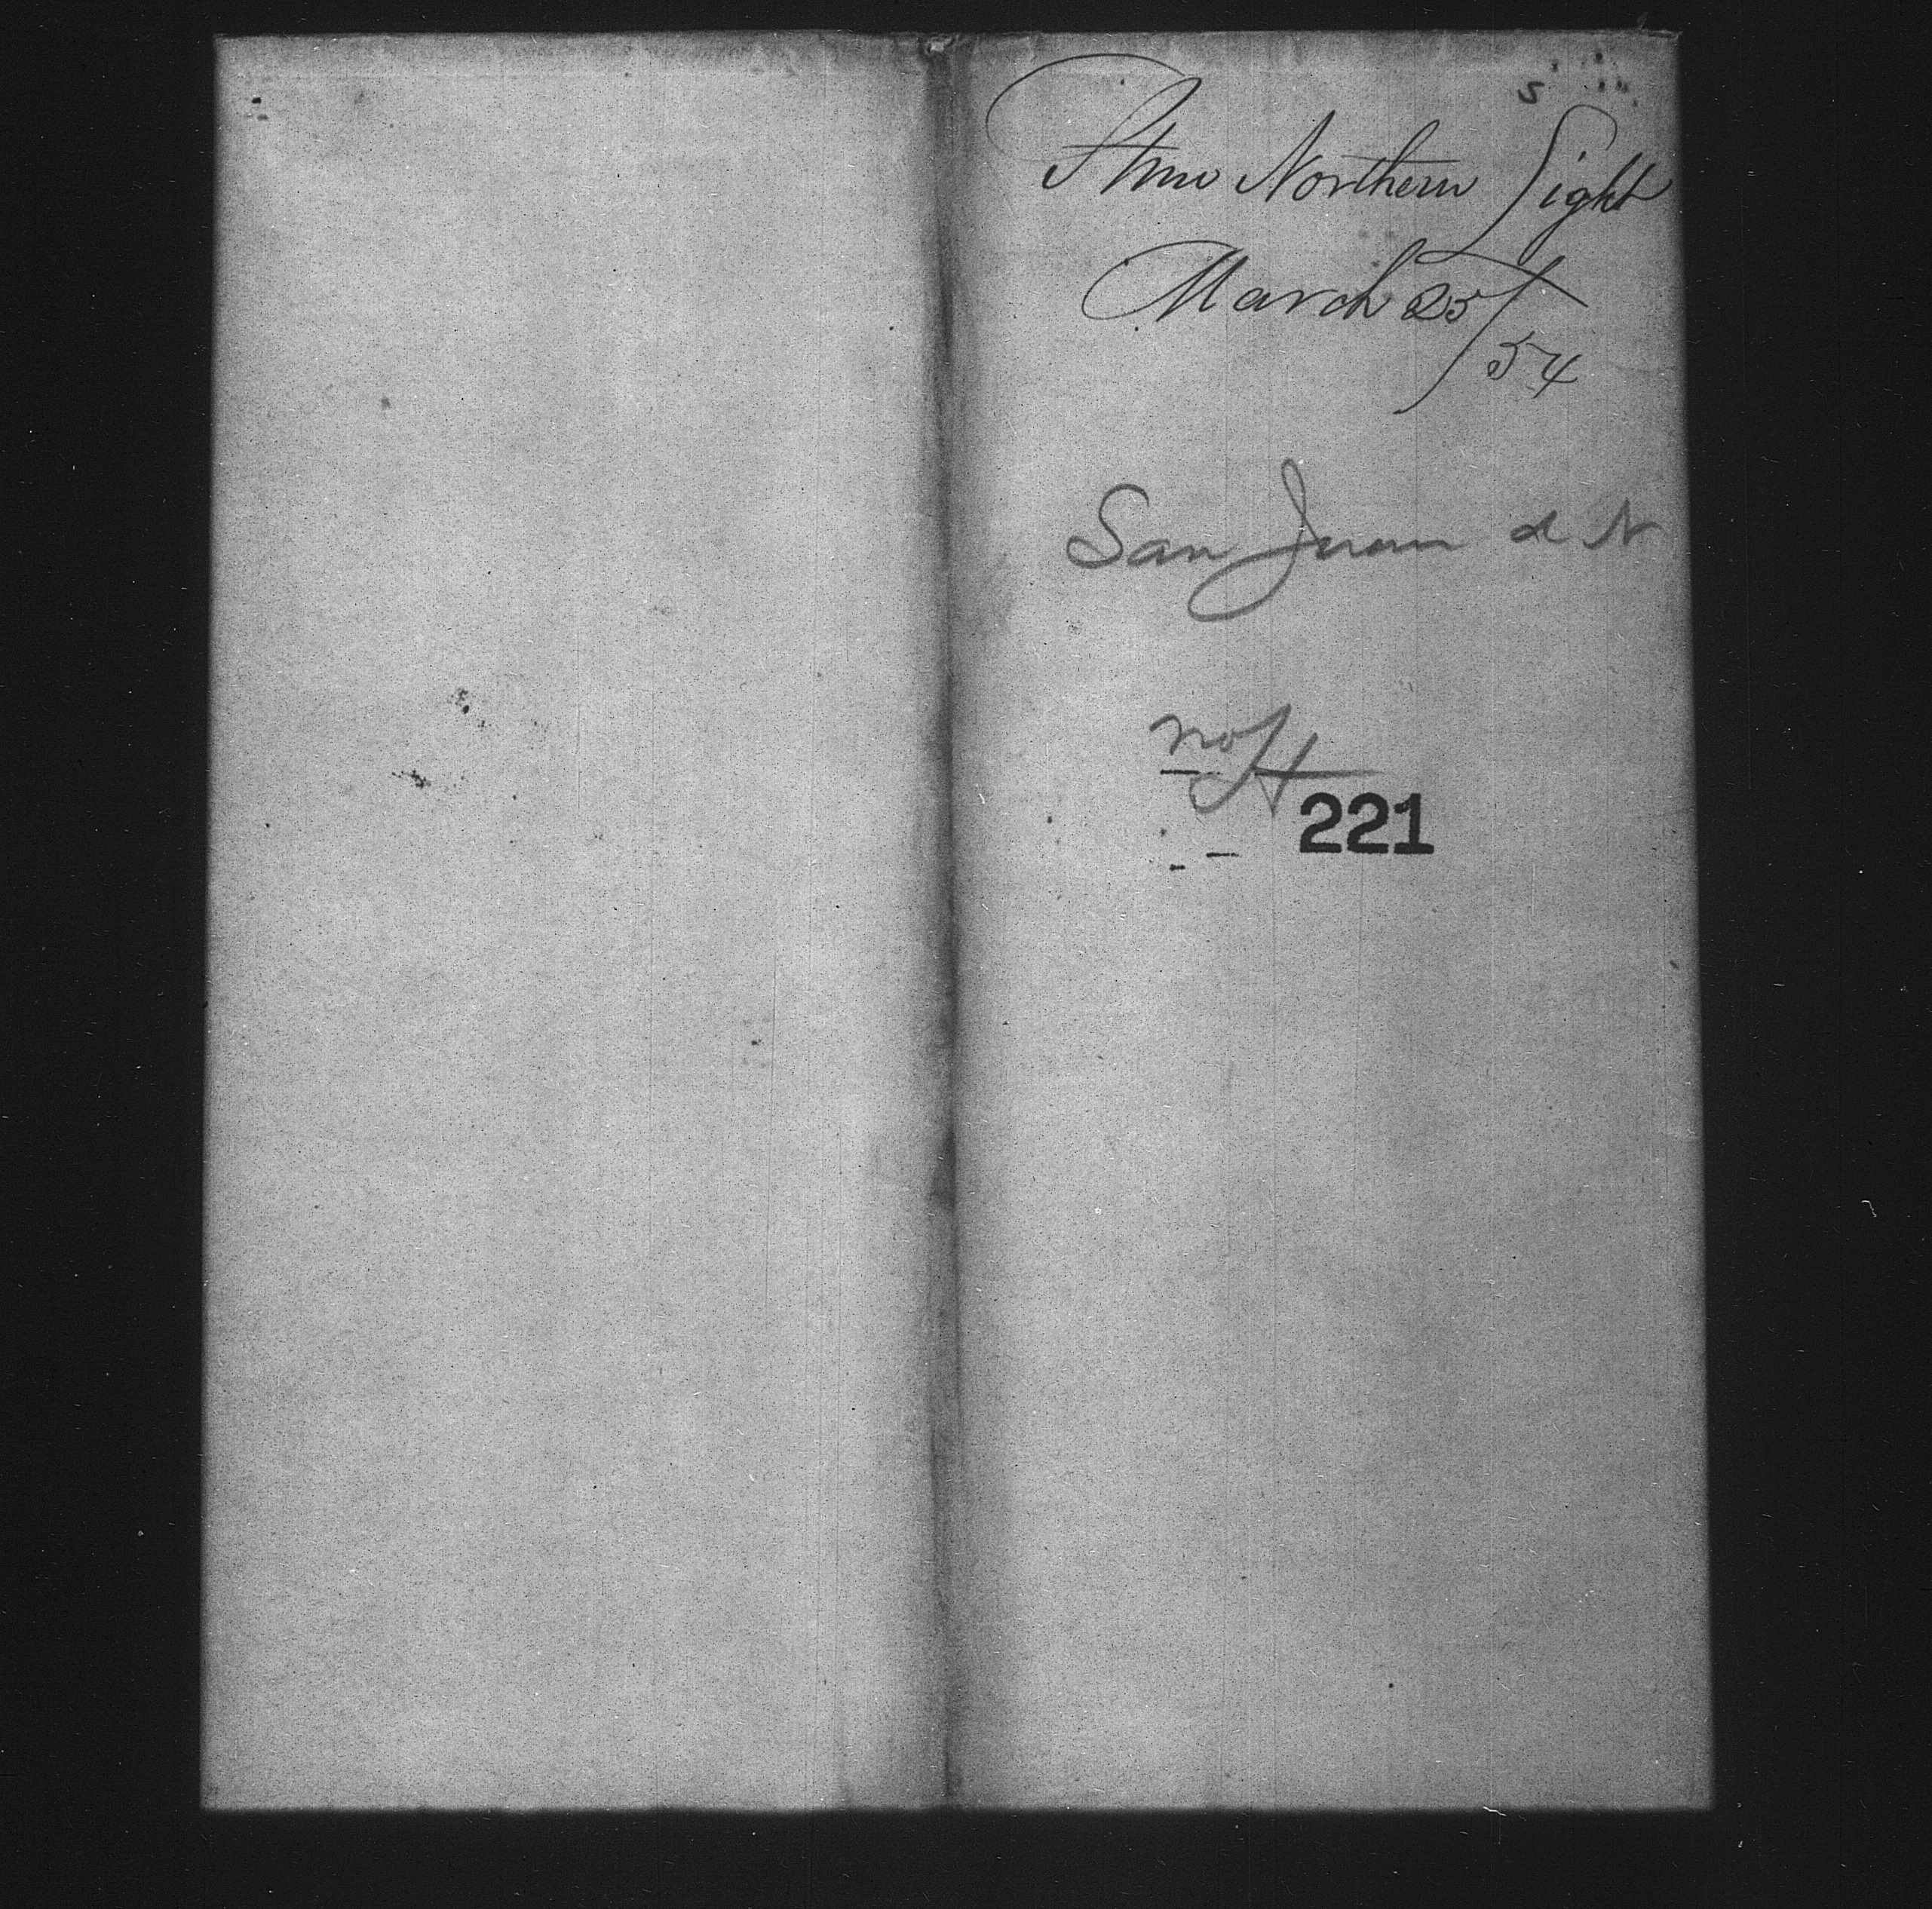 s
Stmr Northern Light
March 25/54
San Juan d N
no
221